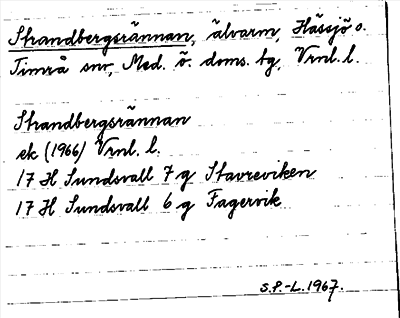 Strandbergsrännan, älvarm, Hässjö s.
Timrå snv, Med. ö. doms. tg, Vrnl. l.
Strandbergsrännan
ek (1966) Vrnl. l.
17 H Sundsvall 7 g Stavreviken
17 H Sundsvall 6 g Fagervik
S.P.-L. 1967.